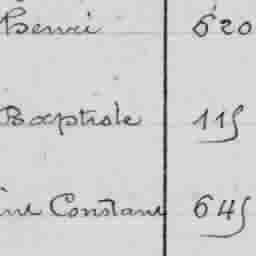 Henri 620
Baptiste 115
ine Constant 645